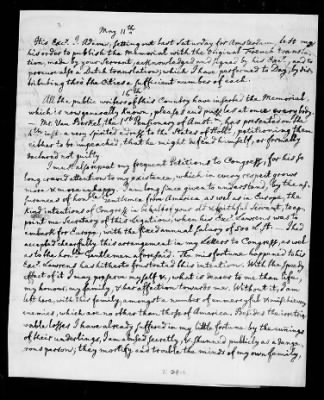 May 11th
His Exc.y J. Adams, setting out last Saturday for Amsterdam, left me
his order to publish the Memorial with the original French transla-
tion, made by your Servant, acknowledged and signed by his Exc.y, and to
procure also a Dutch translation; which I have performed to Day, by dis-
tributing thro' the Cities a sufficient number of each.
16th
All the public writers of this Country have inserted the Memorial
which is now generally known, pleased and puzzles at once every body.
— Mr. Van Berkel, the 1st Pensionary of Amst.m, has presented on the
4th inst. a very spirited address to the States of Holld., petitioning them
either to be impeached, that he might defend himself, or formally
declared not guilty.
I must also repeat my frequent Petitions to Congress, for his so
long craved attention to my existence, which in every respect grows
more & more unhappy. I am long since given to understand, by the as-
surances of honble. Gentlemen from America as well as in Europe, the
kind intentions of Congress in behalf of your old & faithful Servant, to ap-
point me Secretary of this Legation, when his Exc.y Laurens was to
embark for Europe, with the fixed annual salary of 500 £ St. — I had
accepted chearfully this arrangement in my Letters to Congress, as well
as to the honble. Gentlemen aforesaid. The misfortune happened to his
Exc.y Laurens has hitherto frustrated this intention. Only the speedy
effect of it may preserve myself &, what is dearer to me than life,
my honour, my family, & her affection towards me. Without it, I am
left here, with this family, amongst a number of unmerciful & mischievous
enemies, which are no other than those of America. Besides the irretrie-
vable losses I have already suffered in my little fortune by the cunnings
of their underlings, I am abused secretly, & shunned publicly as a dange-
rous person; they mortify and trouble the minds of my own family,